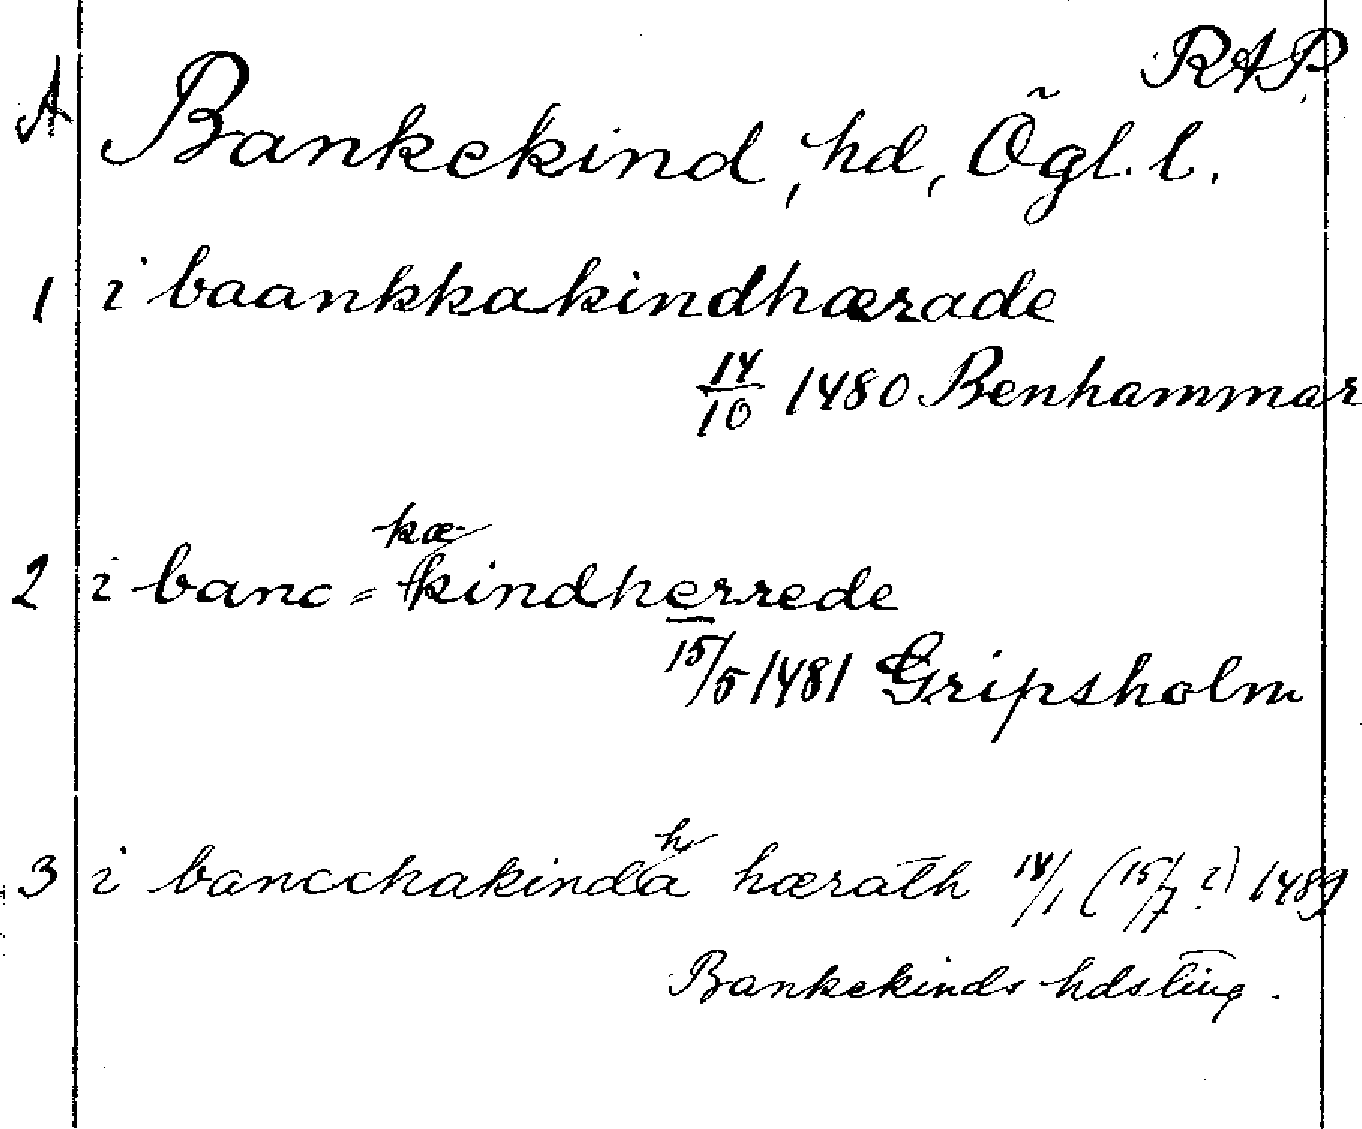 RAP.
A Bankekind, hd, Ögl. l.
1 i baankkakindhærade
14/10 1480 Benhammar
kæ
2 i banc= kindherrede
15/5 1481 Gripsholm
h
3 i bancchakinda hærath 14/1 (15/7 ?) 1489
Bankekinds hdsting.